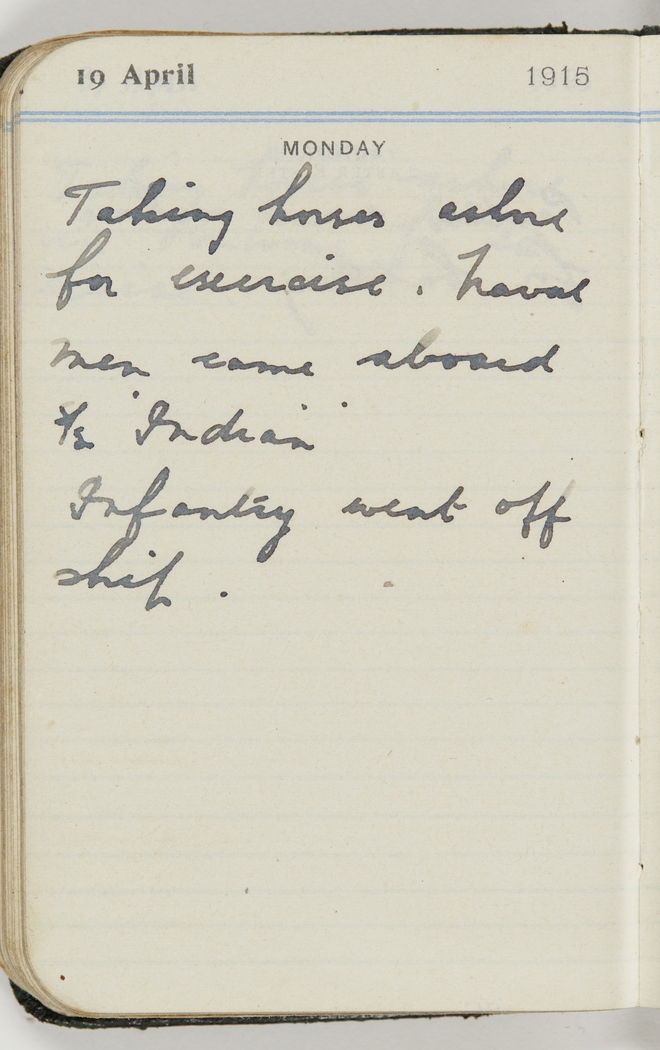 19 April 1915
MONDAY
Taking horses ashore
for exercise. Naval
men came aboard
"Indian"
Infantry went off
ship.